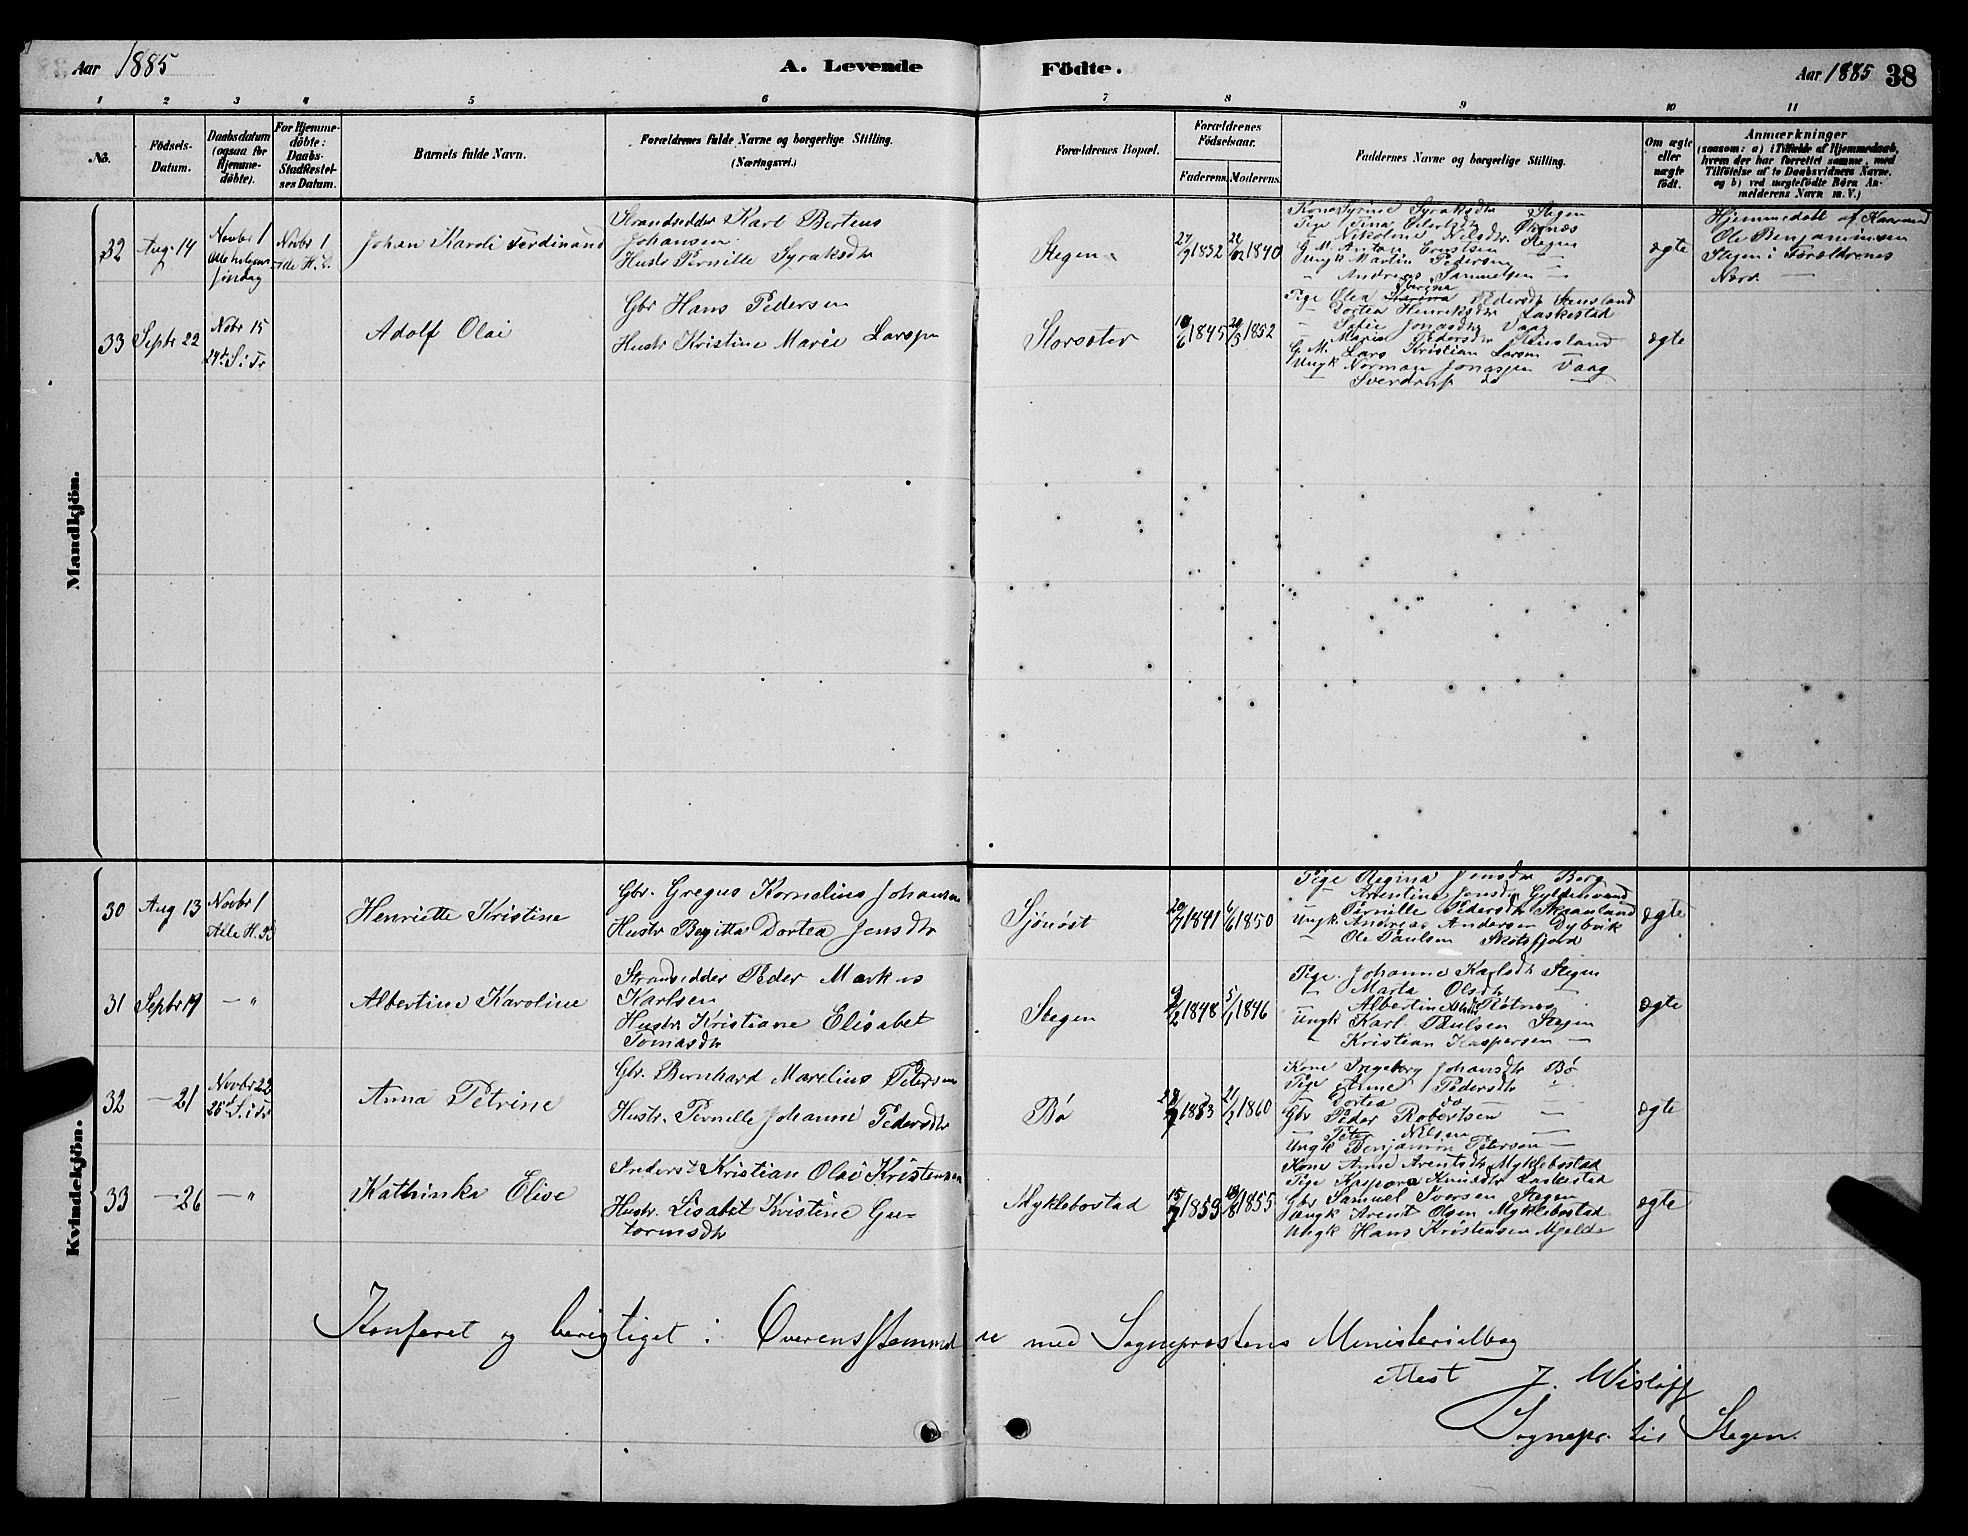 Aar 1885
A. Levende Födte.
Aar 1885 38
1 2 3 4 5 6 7 8 9 10 11
No.
Födsels-Datum.
Daabsdatum (ogsaa for Hjemme-döbte).
For Hjemme-döbte: Daabs-Stadfæstel-ses Datum.
Barnets fulde Navn.
Forældrenes fulde Navne og borgerlige Stilling. (Næringsvei.)
Forældrenes Bopæl.
Forældrenes Födselsaar.
Faderens. Moderens.
Faddernes Navne og borgerlige Stilling.
Om ægte eller uægte födt.
Anmærkninger
(saasom: a) i Tilfælde af Hjemmedaab, hvem der har forrettet samme, med Tilföielse af to Daabsvidners Navne. og b) ved uægtefödte Börn An-melderens Navn m. V.)
Mandkjön.
32 Aug. 14
Novbr 1
Alle helgens
söndag
Novbr 1
Alle H. S.
Johan Karoli Ferdinand
Strandsidder Karl Berteus
Johansen
Hustr Pernille Syraksdtr
Stegen
27/9 1832 1840
Kone Syrine Syraksdtr Stegen
Nikoline Nilsdtr
G. M. Anton Ernstsen Stegen
Ungk Martin Pedersen —
" Andreas Samuelsen —
ægte
Hjemmedöbt af
Ole Benjaminsen
Stegen i Forældrenes
Nærv. —
33 Septr 22
Nobr 15
24de S. i Tr
Adolf Olai
Gbr Hans Pedersen
Hustr Kristine Marie Larsdtr
Storsæter
1845 1852
Pige Olea Pedersdtr
Dortea Henriksdtr Laskestad
Sofie Jonasdtr Vaag
Maria Pedersdtr
G. M. Lars Kristian Larsen
Ungk Norman Jonassen Vaag
Sverdrup do —
ægte
Kvindekjön.
30 Aug 13
Novbr 1
Alle H. S.
Henriette Kristine
Gbr. Gregus Kornelius Johansen
Hustr Begitta Dortea Jensdtr
Sjönöst
20/7 1841 6/6 1850
Pige Regina Jensdtr Borg
" Arentine Jensdtr Gyldenvand
" Pernille Pedersdtr Skaanland
Ungk. Andreas Andersen Dybvik
" Ole Paulsen Skotsfjord
ægte
31 Septbr 19 — "
Albertine Karoline
Strandsidder Peder Markus
Karlsen
Hustr Kristiane Elisabet
Tomasdtr
Stegen
9/2 1848 5/1 1846
Pige. Johanne Karlsdtr Stegen
" Marta Olsdtr —
" Albertine Rötnes
Ungk Karl Paulsen Stegen
" Kristian Kaspersen —
ægte
32 — 21
Novbr 22
25de S. i Tr
Anna Petrine
Gbr. Bernhard Marelius Petersen
Hustr. Pernelle Johanne Pedersdtr
Bö
1853 21/2 1860
Kone Ingeborg Johansdtr Bö
Pige Anne Pedersdtr "
" Dortea do —
Gbr Peder Robertsen —
— Peter Nilsen —
Ungk Benjamin Petersen —
ægte
33 — 26 — "
Kathinka Elise
Inderst Kristian Olai Kristensen
Hustr. Lisabet Kristine Gu-
tormsdtr
Myklebostad
15/7 1859 1855
Kone Anne Arentsdtr Myklebostad
Pige Kaspara Knudsdtr Laskestad
Gbr Samuel Iversen Stegen
Ungk Arent Olsen Myklebostad
Ungk Hans Kristensen Mjelde
ægte
Konferet og berigtiget i Overensstemmelse med Sognepræstens Ministerialbog
Attest J. Wislöff
Sognepr. til Stegen.